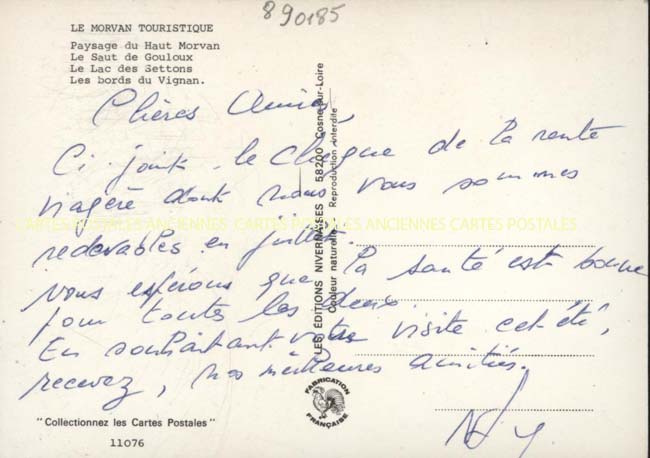 890185
LE MORVAN TOURISTIQUE
Paysage du Haut Morvan
Le Saut de Gouloux
Le Lac des Settons
Les bords du Vignan.
Chères Amies,
Ci joint le chèque de la rente
viagère dont nous vous sommes
CARTES POSTALES ANCIENNES CARTES POSTALES ANCIENNES CARTES POSTALES
redevables en juillet.
vous espérons que la santé est bonne
pour toutes les deux.
En souhaitant votre visite cet été,
recevez, nos meilleures amitiés.
LES ÉDITIONS NIVERNAISES 58200 Cosne-sur-Loire
Couleur naturelle - Reproduction interdite
FABRICATION
FRANÇAISE
"Collectionnez les Cartes Postales"
11076